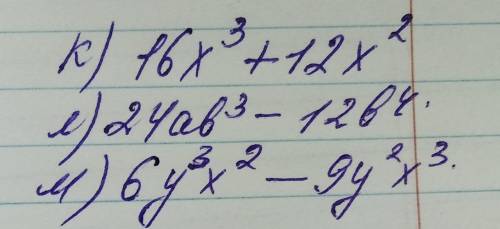 к) 16x³ + 12x²
л) 24ab³ - 12b⁴.
м) 6y³x² - 9y²x³.